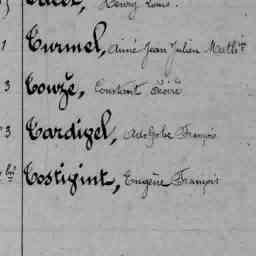 Henry Louis.
1 Turmel, Aimé Jean Julien Math^in
3 Touzé, Constant Désiré
3 Tardivel, Adolphe François
Tostivint, Eugène François